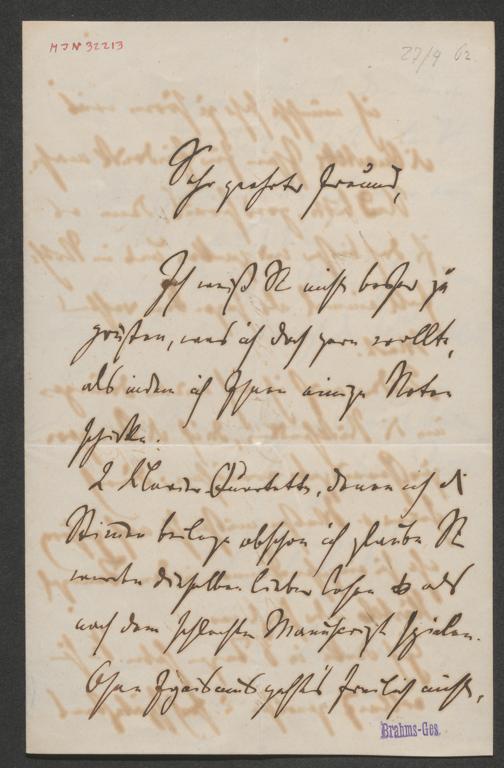 HJN 32213
27/9 62
Sehr geehrter Freund,
Ich weiß Sie nicht besser zu
grüßen, was ich doch gern wollte,
als indem ich Ihnen einige Noten
schicke.
2 Klavier-Quartette, denen ich die
Stimmen beilege obschon ich glaube Sie
werden dieselben lieber lesen als
nach dem schlechten Manuscript spielen.
Ohne geht's freilich nicht,
Brahms-Ges.